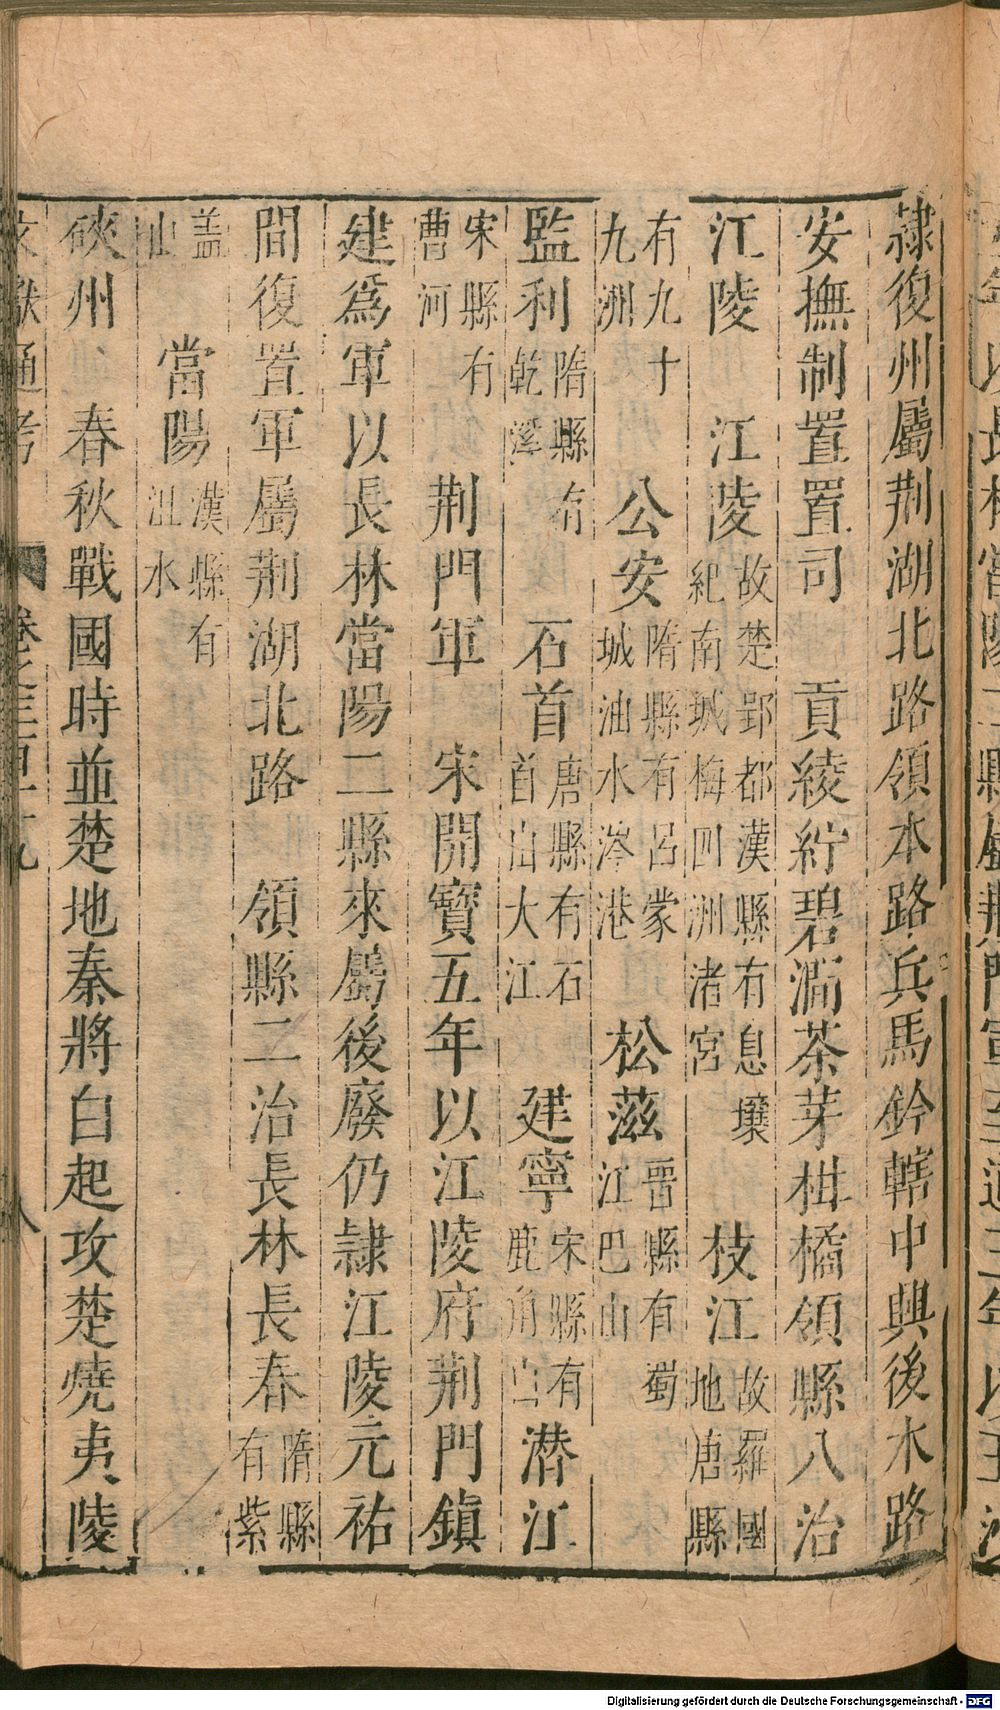 年以長林當陽二縣屬荆門軍至道三年以玉沙
隷復州屬荆湖北路領本路兵馬鈐轄中興後本路
安撫制置置司　貢綾紵碧澗茶芽柑橘領縣八治
江陵　江陵故楚郢都漢縣有息壤紀南城梅囬洲渚宮　枝江故羅國地唐縣
有九十九洲　公安隋縣有呂蒙城油水涔港　松滋晉縣有蜀江巴山
監利隋縣有乾溪　石首唐縣有石首山大江　建寧宋縣有鹿角　潜江
宋縣有曹河　荆門軍　宋開寶五年以江陵府荆門鎮
建爲軍以長林當陽二縣來屬後廢仍隷江陵元祐
間復置軍屬荆湖北路　領縣二治長林長春隋縣有紫
盖山　當陽漢縣有沮水
硤州　春秋戰國時並楚地秦將白起攻楚燒夷陵
文獻通考　卷之三百十九　八
Digitalisierung gefördert durch die Deutsche Forschungsgemeinschaft - DFG